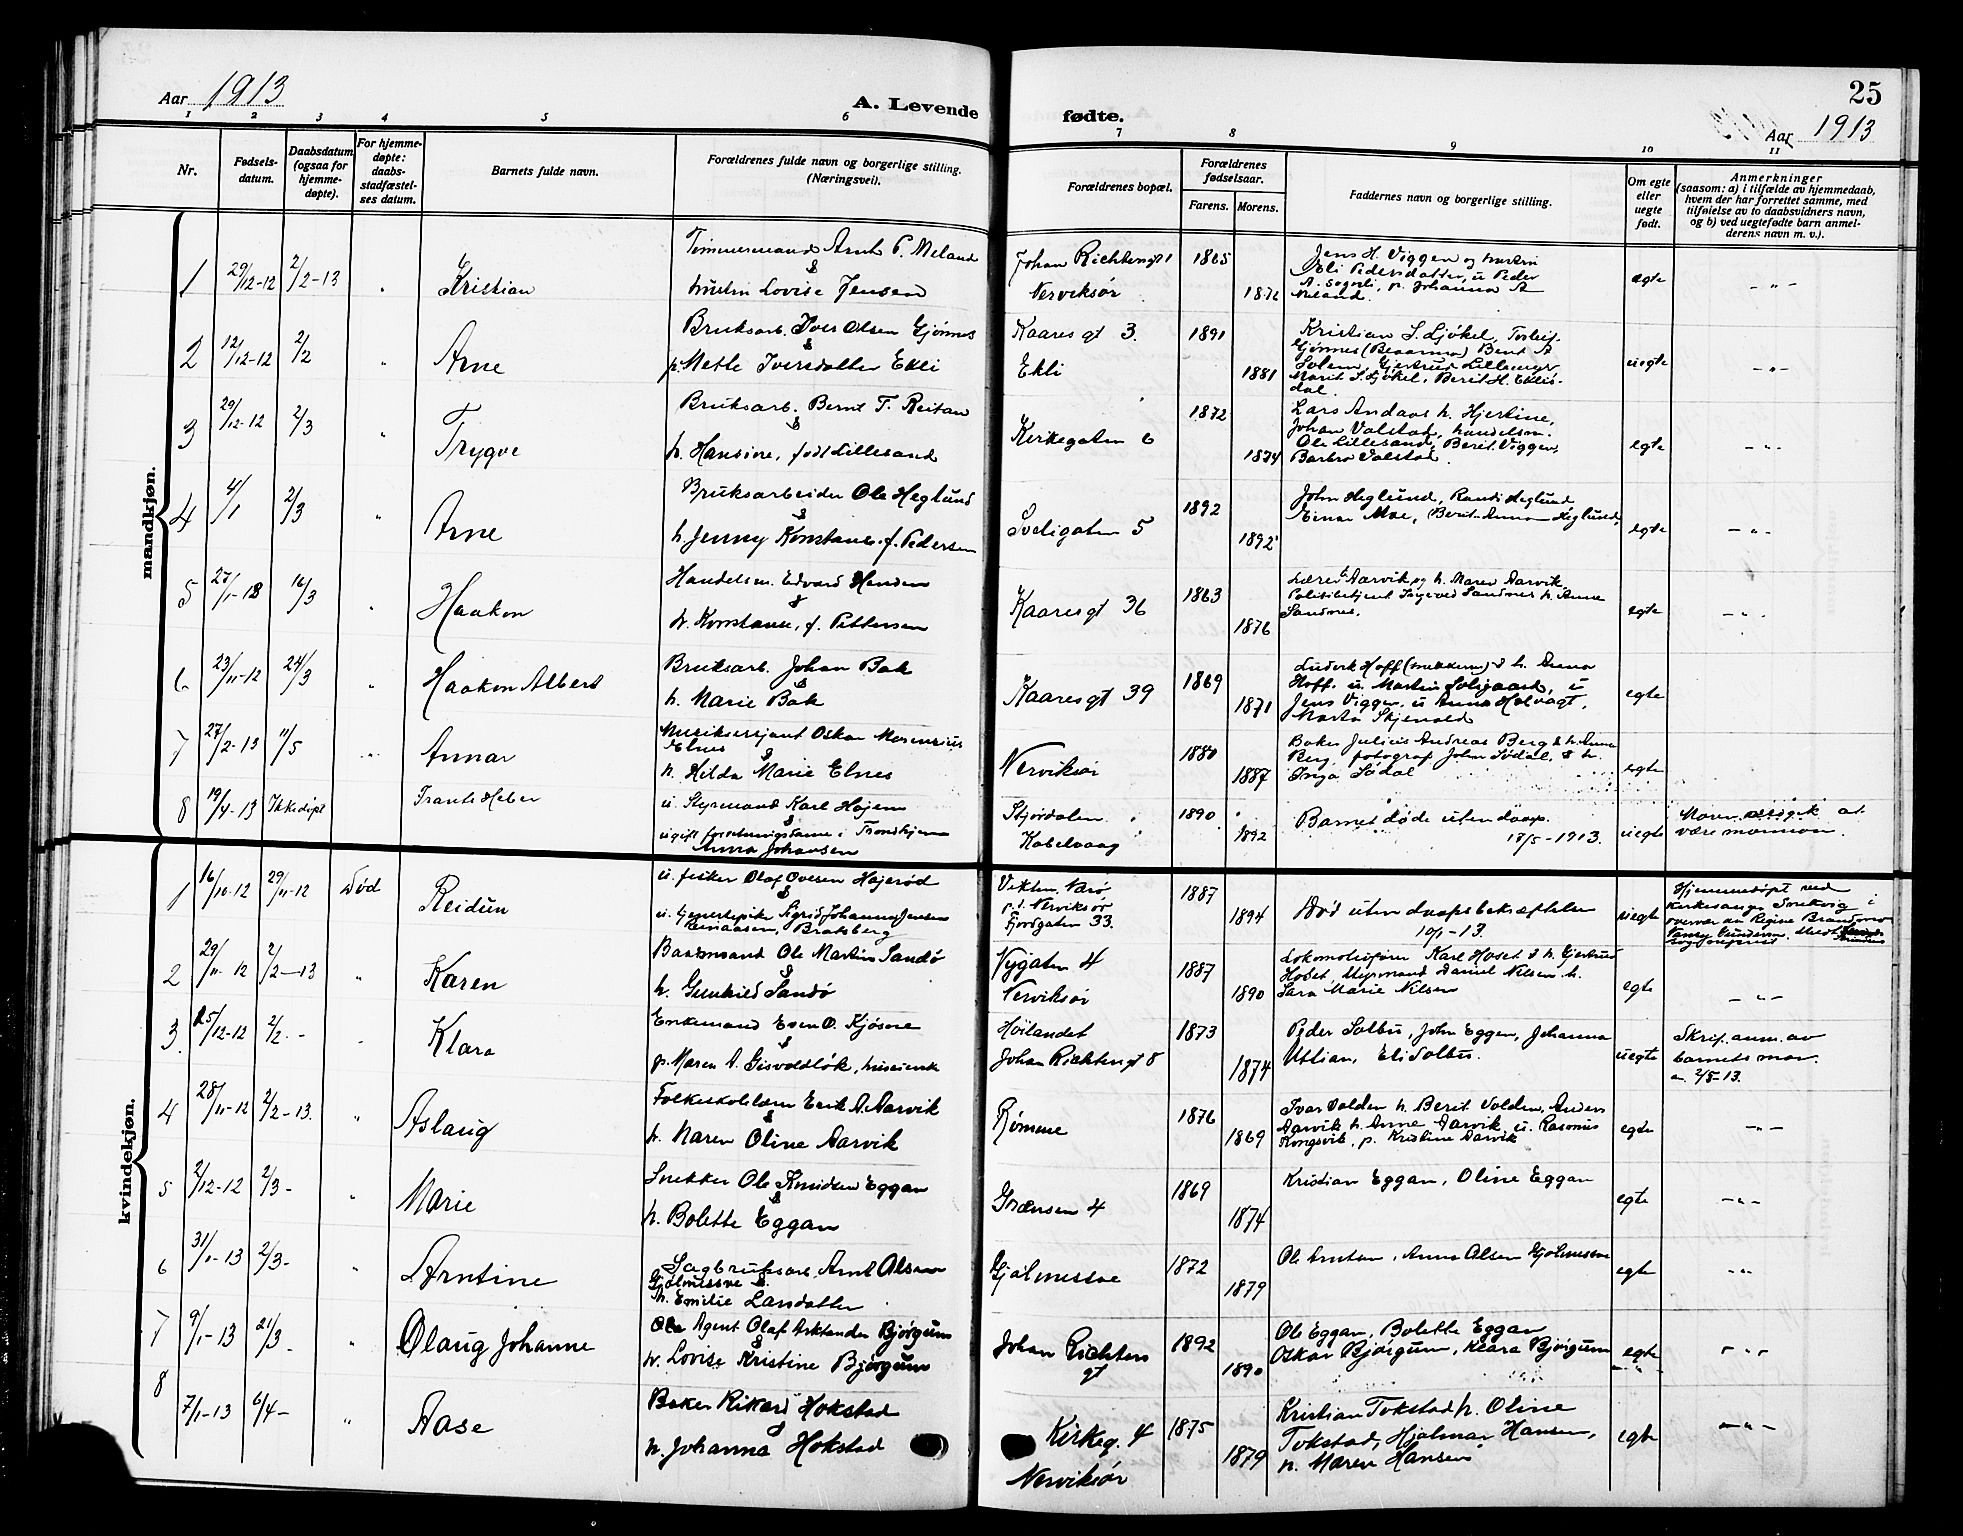 Aar 1913
A. Levende
fødte.
25
Aar 1913
1 2 3 4 5 6 7 8 9 10 11
Nr.
Fødsels-
datum.
Daabsdatum
(ogsaa for
hjemme-
døpte).
For hjemme-
døpte:
daabs-
stadfæstel-
ses datum.
Barnets fulde navn.
Forældrenes fulde navn og borgerlige stilling.
(Næringsvei).
Forældrenes bopæl.
Forældrenes
fødselsaar.
Farens. Morens.
Faddernes navn og borgerlige stilling.
Om egte
eller
uegte
født.
Anmerkninger
(saasom: a) i tilfælde av hjemmedaab,
hvem der har forrettet samme, med
tilføielse av to daabsvidners navn,
og b) ved uegtefødte barn anmel-
derens navn m. v.).
mandkjøn.
1 29/12-12 2/2-13 " Kristian
Tømmermand Arnt P. Meland
&
hustru Lovise Jensen
Johan Richtersgt 1
Nerviksør
1865
1872
Jens H. Viggen og hustru
Eli Pedersdatter, u Peder
A. Segerli, p. Johanna A
Meland.
egte
- " -
2 12/12-12 2/2 " Arne
Bruksarb. Iver Olsen Gjønnes
&
p. Mette Iversdatter Ekli
Kaares gt 3.
Ekli
1891
1881
Kristian S. Ljøkel, Torleif
Gjønnes Bernt A
Solem, Gjertrud Lillemyr
Marit S. Ljøkel, Berit H. Eklis-
dal.
uegte
- " -
3 29/12-12 2/3 " Trygve
Bruksarb. Bernt T. Reitan
&
h. Hansine, født Lillesand
Kirkegaten 6
1872
1874
Lars Andaas h. Hjertine,
Johan Valstad, handelsm.
Ole Lillesand, Berit Viggen,
Barbro Valstad.
egte
- " -
4 4/1 2/3 " Arne
Bruksarbeider Ole Heglund
&
h. Jenny Konstanse f. Pedersen
Sveligaten 5
1892
1892
John Heglund, Randi Heglund
Einar Moe, Berit Anna Heglund,
egte
- " -
5 27/1-13 16/3 " Haakon
Handelsm. Edvard Hansen
&
h. Konstanse, f. Pettersen
Kaaresgt 36
1863
1876
Lærer Aarvik og h. Maren Aarvik
Politibetjent Sigvard Sandnes h. Anne
Sandnes.
egte
- " -
6 23/11-12 24/3 " Haakon Albert
Bruksarb. Johan Bak
&
h. Marie Bak
Kaaresgt 39
1869
1871
Luderk Hoff (snekker) & h. Anna
Hoff. u. Martin Solsgaard, u
Jens Viggen, u Anna Halvagt,
Marta Skjenald
egte
7 27/2-13 11/5 " Annar
Musikersejant Oskar
Elnes &
h. Hilda Marie Elnes
Nerviksør
1880
1887
Baker Julius Andreas Berg & h. Anna
Berg, fotograf John Sødal, & h.
Inga Sødal
egte
8 19/4-13 Ikke døpt
u. Styrmand Karl Højem
&
ugift forretningsdame i Trondhjem
Anna Johansen
Stjørdalen
Kabelvaag
1890
1892
Barnet døde uten daap.
18/5-1913.
uegte
at
være
kvindekjøn.
1 16/10-12 29/11-12 Død Reidun
u. fisker Olaf Ovesen Højerød
&
u. Sigrid Johanna Jensen
Einaasen, Bratsberg
Vikten, Nærø
p.t. Nerviksør
Fjordgaten 33.
1887
1894
Død uten daapsbekræftelse
10/1-13.
uegte
Hjemmedøpt ved
kirkesanger i
overvær av Regine
2 29/11-12 2/2-13 " Karen
Baatsmand Ole Martin Sandø
&
h. Gunhild Sandø
Nygaten 4
Nerviksør
1887
1890
Lokomotivfører Karl Hoset & h. Gjertrud
Hoset, styrmand Daniel Nilsen h.
Sara Marie Nilsen
egte
- " -
3. 25/12-12 2/2 - " Klara
Enkemand Even O. Kjøsnes
&
p. Maren A. Gisvoldløk,
Høilandet
Johan Richtersgt 8
1873
1874
Peder Solbu, John Eggen, Johanna
Utlian, Eli Solbu.
uegte
Skrif. anm. av
barnets mor
2/5-13.
4 28/11-12 2/2-13. " Aslaug
Folkeskolelærer Erik A. Aarvik
&
h. Maren Oline Aarvik
Rømme
1876
1869
Ivar Volden h. Berit Volden, Anders
Aarvik h. Anne Aarvik, u. Rasmus
Kongsvik, p. Kristine Aarvik
egte
- " -
5 2/12-12 2/3 - " Marie
Snekker Ole Knudsen Eggan
&
h. Bolette Eggan
Grænsen 4
1869
1874
Kristian Eggan, Oline Eggan
egte
- " -
6 31/1-13 2/3 - " Arntine
Sagbruksarb. Arnt Olsen
Gjølmesøe &
h. Emilie Larsdatter
Gjølmesøe
1872
1879
Ole Arntsen, Anna Olsen Gjølmesøe
egte
- " -
7 9/1-13 21/3 - " Olaug Johanne
Agent Olaf Arktander Bjørgum
&
h. Lovise Kristine Bjørgum
Johan Richters
gt
1892
1890
Ole Eggan, Bolette Eggan
Oskar Bjørgum, Klara Bjørgum
egte
- " -
8 7/1-13 6/4 - " Aase
Baker Rikard Hokstad
&
h. Johanna Hokstad
Kirkeg. 4
Nerviksør
1875
1879
Kristian Tokstad h. Oline
Tokstad, Hjalmar Hansen,
h. Maren Hansen
egte
- " -